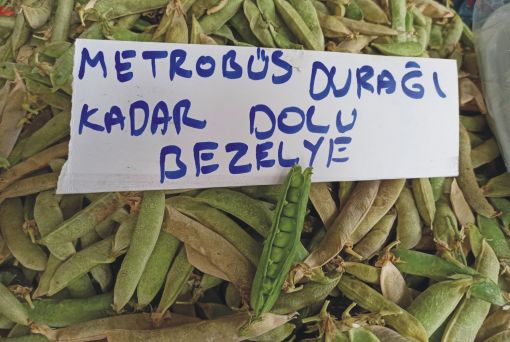 METROBÜS DURAĞI
KADAR DOLU
BEZELYE